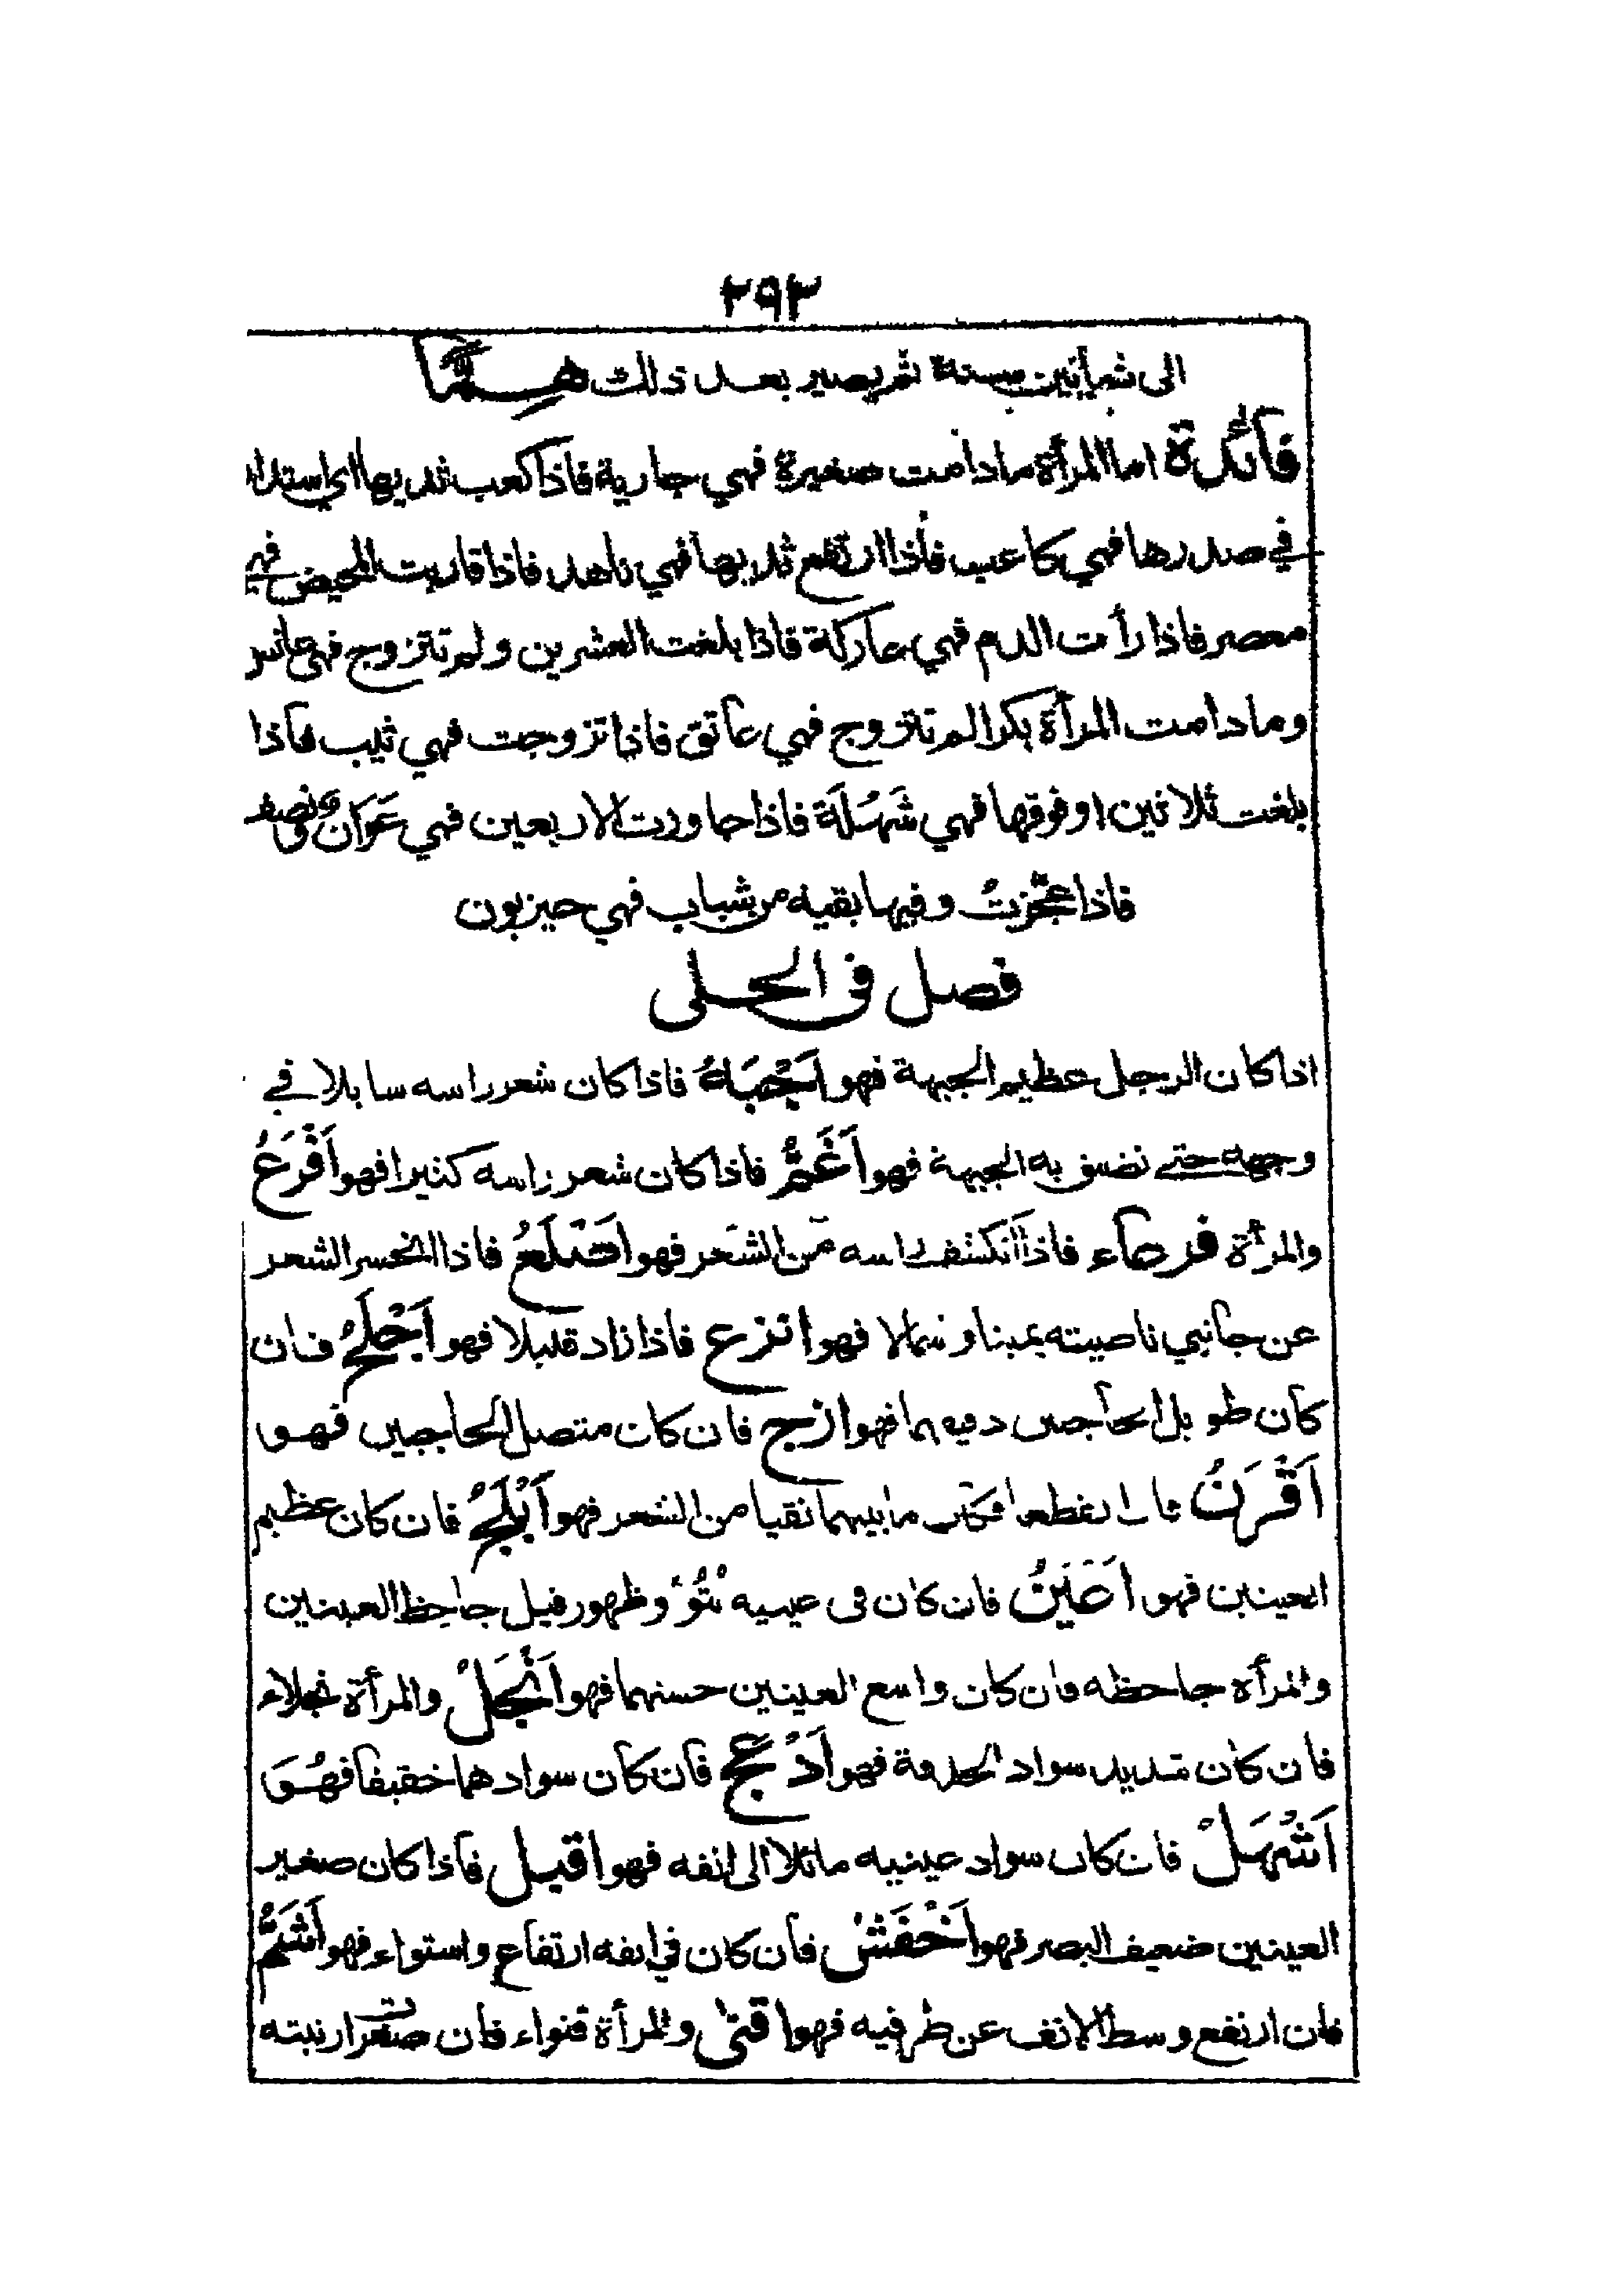 ٢٩٢
الى ثمانين سنة ثم يصير بعد ذلك هِمًّا
فائدة اما المرأة مادامت صغيرة فهي جارية فاذا كعب ثديها اي استدار
في صدرها فهي كاعب فأذا ارتفع ثديها فهي ناهد فاذا قاربت المحيض فهي
معصر فاذا رأت الدم فهي عاركة فاذا بلغت العشرين ولم تتزوج فهي عانس
وما دامت المرأة بكرا لم تتزوج فهي عاتق فاذا تزوجت فهي ثيب فاذا
بلغت ثلاثين او فوقها فهي شَهْلَة فاذا جاوزت الاربعين فهي عَوَان ونصف
فاذا عجزت وفيها بقيه من شباب فهي حيزبون
فصل فى الحلى
اذا كان الرجل عظيم الجبهة فهو اَجْبَهُ فاذا كان شعر راسه سايلا في
وجهه حتى تضيق به الجبهة فهو اَغَمُّ فاذا كان شعر راسه كثيرا فهو اَفْرَعُ
والمرأة فرعاء فاذا انكشف راسه من الشعر فهو اَصْلَعُ فاذا انحسر الشعر
عن جانبي ناصيته يمينا وشمالا فهو انزع فاذا زاد قليلا فهو اَجْلَحُ فان
كان طويل الحاجبين دقيقهما فهو ازج فان كان متصل الحاجبين فهو
اَقْرَنُ فان انقطعا فكان ما بينهما نقيا من الشعر فهو اَبْلَجُ فان كان عظيم
العينين فهو اَعْيَنُ فان كان فى عينيه نُتُوْء وظهور فيل جاحِظ العينين
والمرأة جاحظه فان كان واسع العينين حسنهما فهو اَنْجَلْ والمرأة نجلاء
فان كان شديد سواد الحدقة فهو اَدْعَج فان كان سوادهما خفيفا فهُوَ
اَشْهَلْ فان كان سواد عينيه مائلا الى انفه فهو اقبل فاذا كان صغير
العينين ضعيف البصر فهو اَخْفَشْ فان كان في انفه ارتفاع واستواء فهو اَشَمُّ
فان ارتفع وسط الانف عن طرفيه فهو اقنى والمرأة قنواء فان صغرت ارنبته